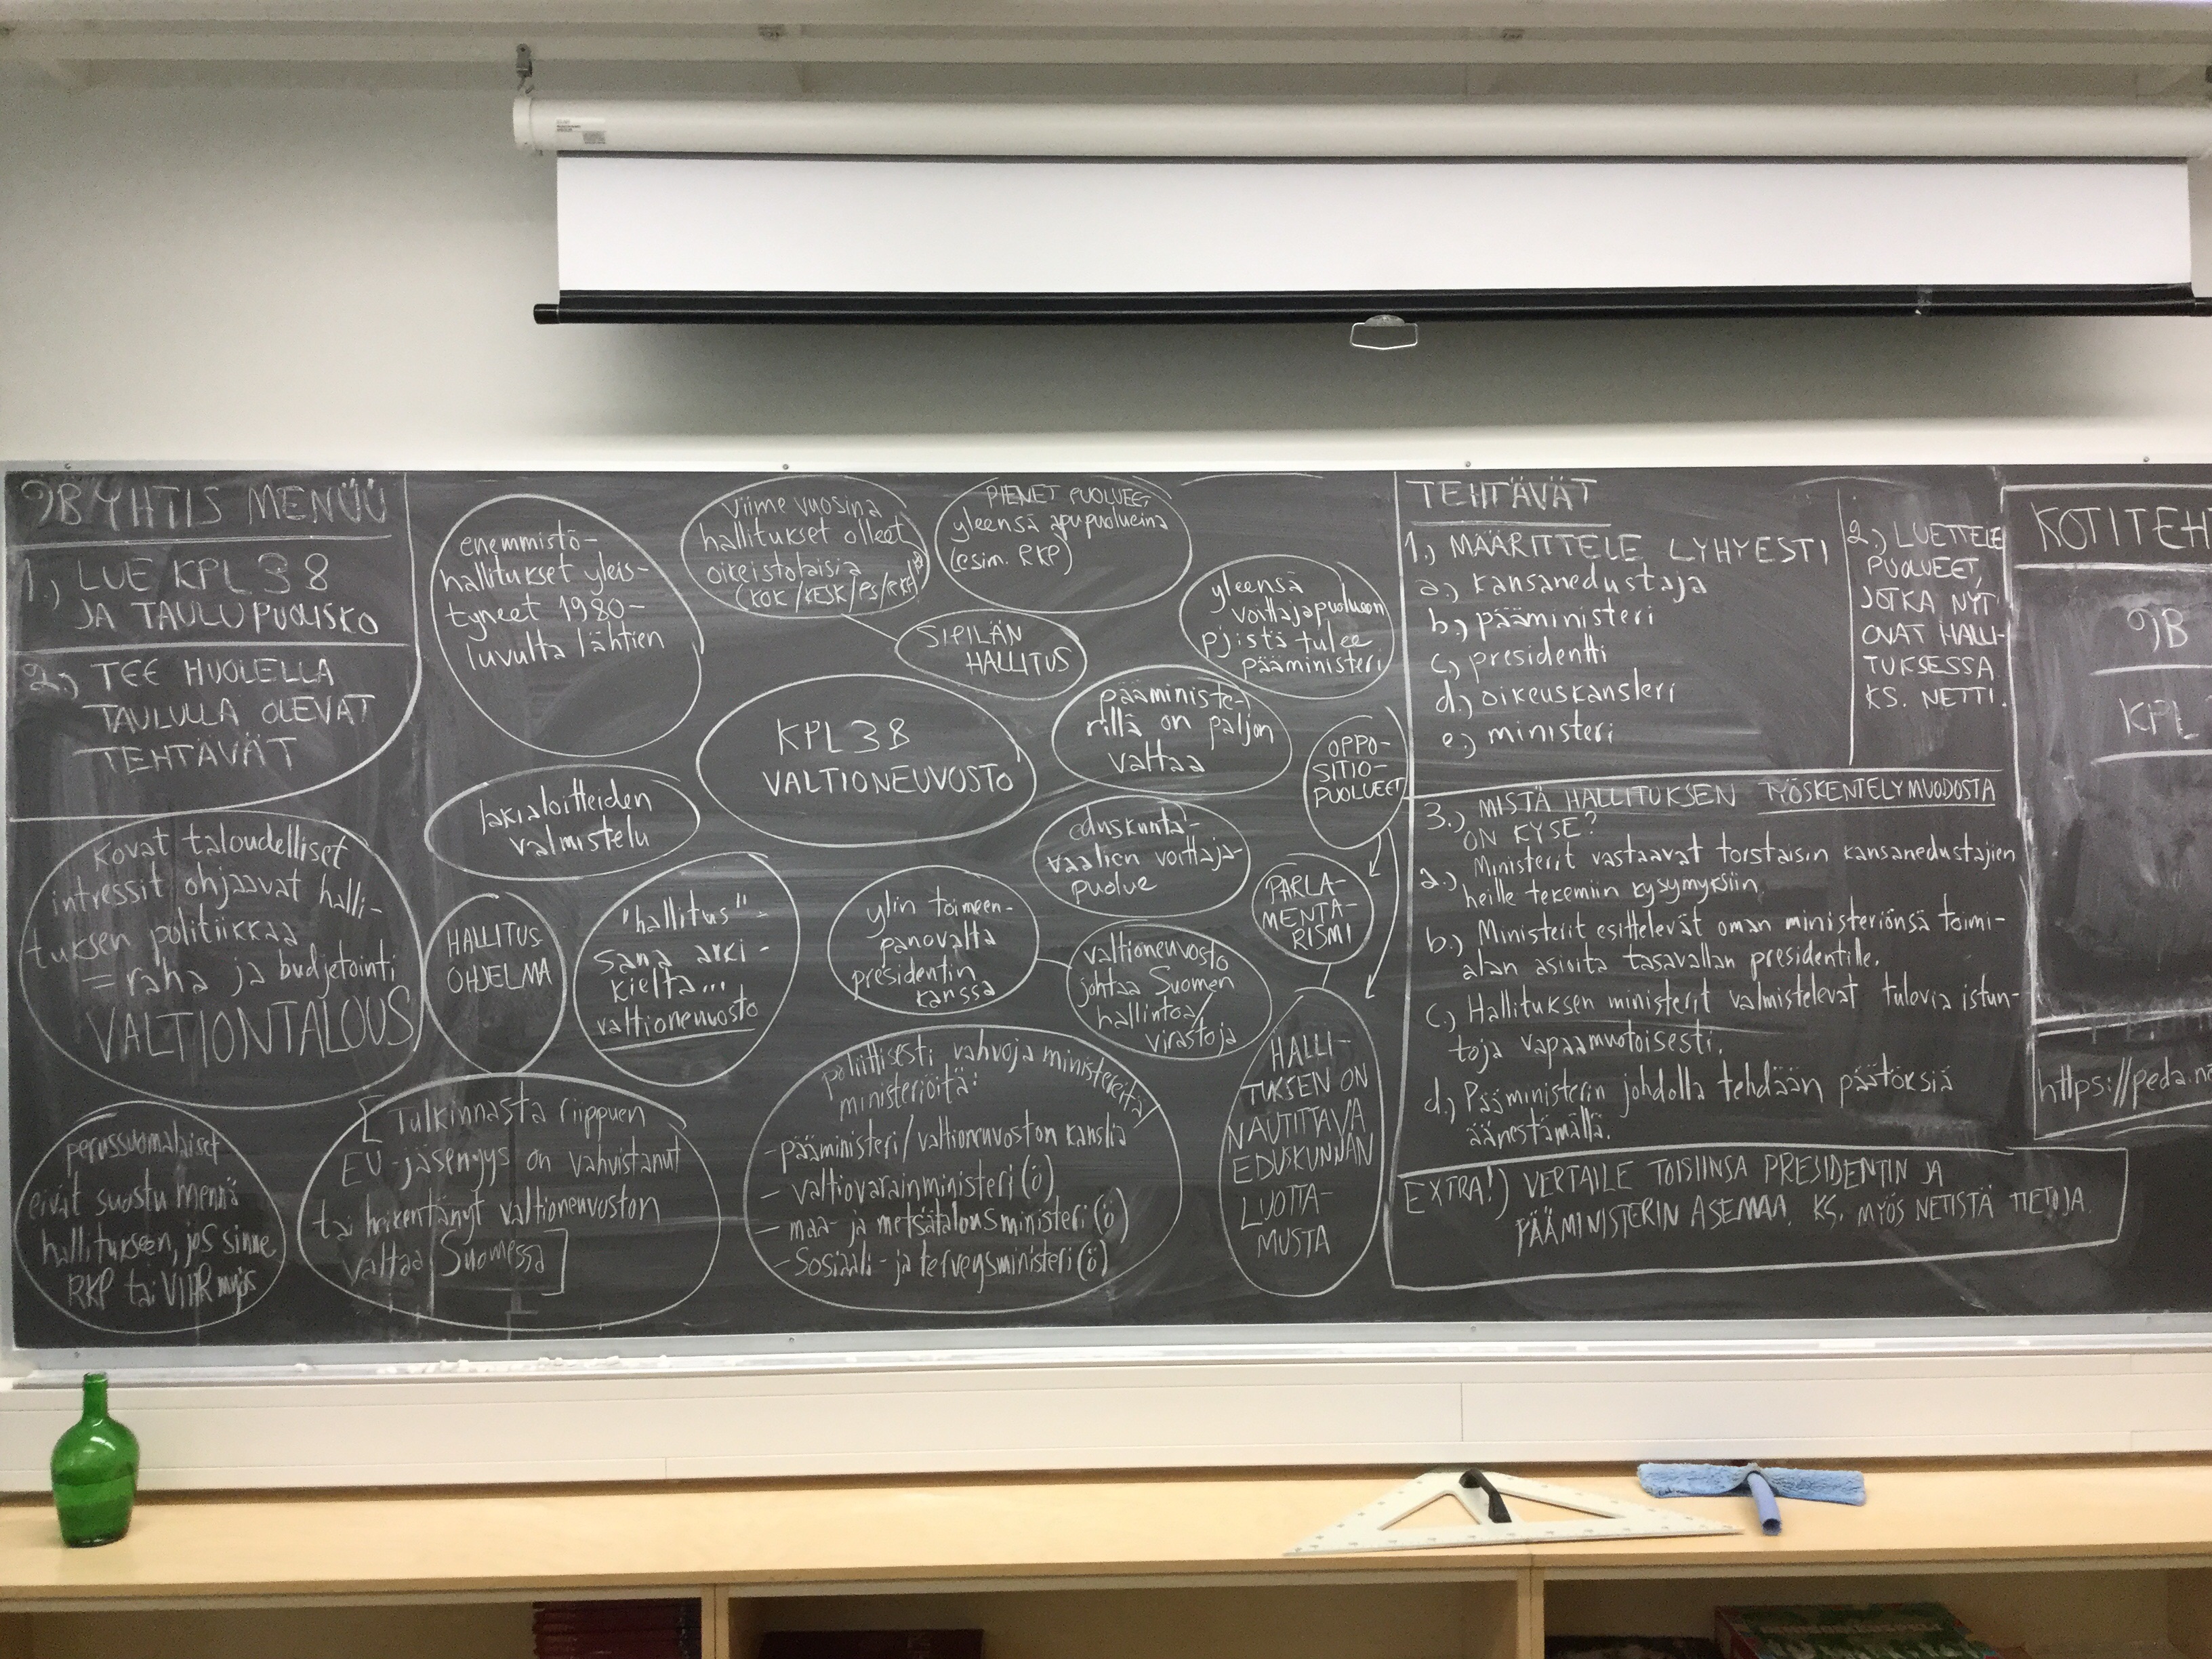 9B YHTIS MENÜÜ
1.) LUE KPL 38
JA TAULUPUOLISKO
2.) TEE HUOLELLA
TAULULLA OLEVAT
TEHTÄVÄT
kovat taloudelliset
intressit ohjaavat halli-
tuksen politiikkaa
= raha ja budjetointi
VALTIONTALOUS
perussuomalaiset
eivät suostu mennä
hallitukseen, jos sinne
RKP tai VIHR myös
enemmistö-
hallitukset yleis-
tyneet 1980-
luvulta lähtien
viime vuosina
hallitukset olleet
oikeistolaisia
(KOK/KESK/PS/RKP)
PIENET PUOLUEET
yleensä apupuolueina
(esim. RKP)
SIPILÄN
HALLITUS
yleensä
voittajapuolueen
pj:stä tulee
pääministeri
KPL 38
VALTIONEUVOSTO
pääministe-
rillä on paljon
valtaa
OPPO-
SITIO-
PUOLUEET
lakialoitteiden
valmistelu
eduskunta-
vaalien voittaja-
puolue
PARLA-
MENTA-
RISMI
HALLITUS
OHJELMA
"hallitus"-
sana arki-
kieltä...
valtioneuvosto
ylin toimeen-
panovalta
presidentin
kanssa
valtioneuvosto
johtaa Suomen
hallintoa/
virastoja
[Tulkinnasta riippuen
EU-jäsenyys on vahvistanut
tai heikentänyt valtioneuvoston
valtaa Suomessa]
poliittisesti vahvoja ministereitä/
ministeriöitä:
-pääministeri/valtioneuvoston kanslia
- valtiovarainministeri(ö)
- maa- ja metsätalousministeri(ö)
- Sosiaali- ja terveysministeri(ö)
HALLI-
TUKSEN ON
NAUTITTAVA
EDUSKUNNAN
LUOTTA-
MUSTA
TEHTÄVÄT
1.) MÄÄRITTELE LYHYESTI
a.) kansanedustaja
b.) pääministeri
c.) presidentti
d.) oikeuskansleri
e.) ministeri
2.) LUETTELE
PUOLUEET,
JOTKA NYT
OVAT HALLI-
TUKSESSA
KS. NETTI.
3.) MISTÄ HALLITUKSEN TYÖSKENTELYMUODOSTA
ON KYSE?
a.) Ministerit vastaavat torstaisin kansanedustajien
heille tekemiin kysymyksiin.
b.) Ministerit esittelevät oman ministeriönsä toimi-
alan asioita tasavallan presidentille.
c.) Hallituksen ministerit valmistelevat tulevia istun-
toja vapaamuotoisesti.
d.) Pääministerin johdolla tehdään päätöksiä
äänestämällä.
EXTRA!) VERTAILE TOISIINSA PRESIDENTIN JA
PÄÄMINISTERIN ASEMAA. KS. MYÖS NETISTÄ TIETOJA.
KOTITEH
9B
KPL
https://peda.ne